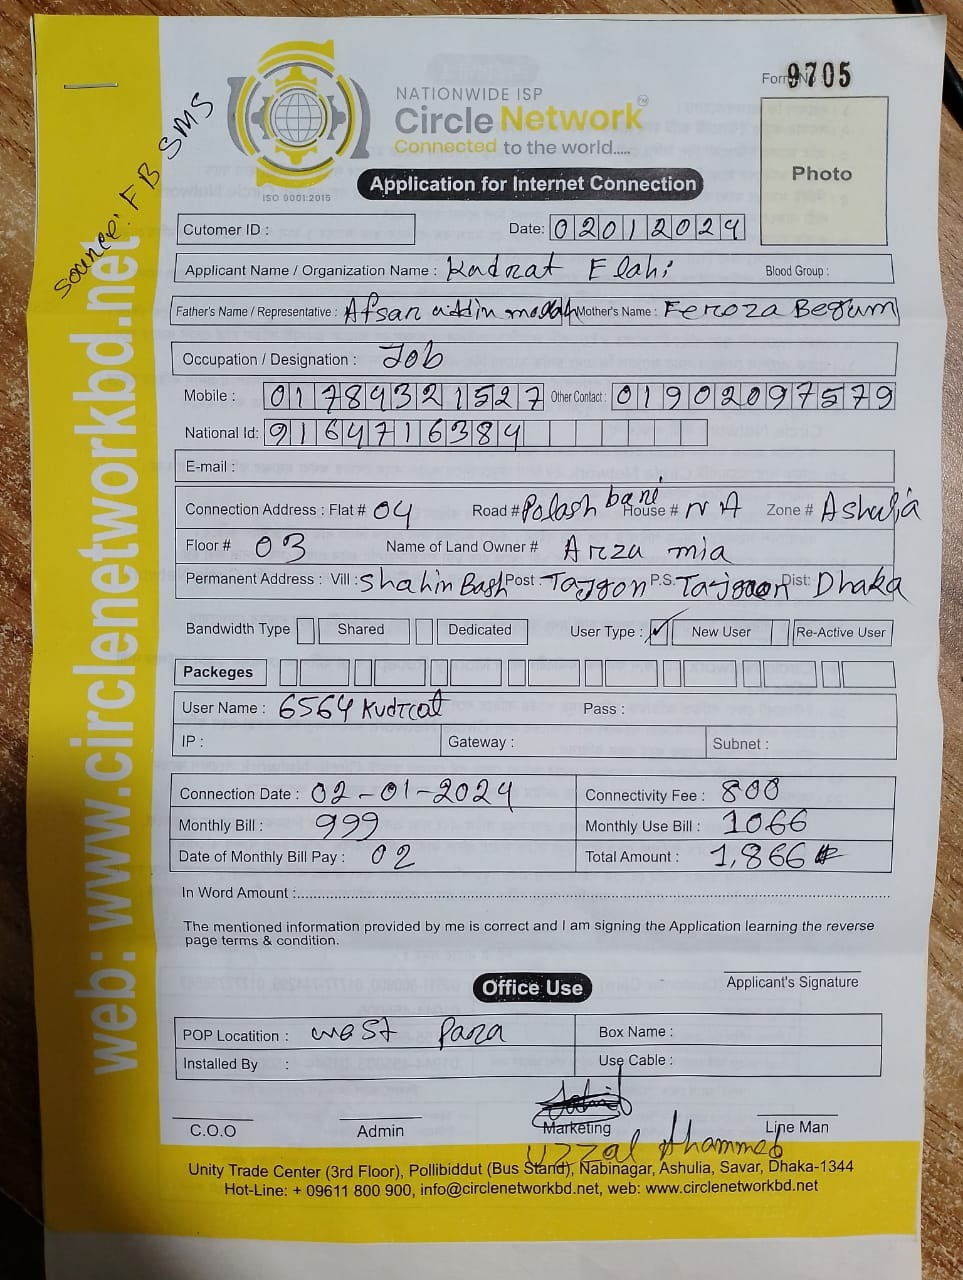 Form No 9705
NATIONWIDE ISP
Circle Network TM
Connected to the world.....
ISO 9001:2015
Source: FB SMS
Application for Internet Connection
Photo
Cutomer ID :
Date: 02012024
Applicant Name / Organization Name : Kudrat Elahi Blood Group :
Father's Name / Representative : Afsar uddin mollah Mother's Name : Feroza Begum
Occupation / Designation : Job
Mobile : 01789321527 Other Contact : 01902097579
National Id: 9164716384
E-mail :
Connection Address : Flat # 04 Road # Polash bari House # NA Zone # Ashulia
Floor # 03 Name of Land Owner # Arzu mia
Permanent Address : Vill : Shahin Bash Post - Tajgon P.S. Dist: Dhaka
Bandwidth Type Shared Dedicated User Type : ✓ New User Re-Active User
Packeges
User Name : 6564 Kudrat Pass :
IP : Gateway : Subnet :
Connection Date : 02-01-2024 Connectivity Fee : 800
Monthly Bill : 999 Monthly Use Bill : 1066
Date of Monthly Bill Pay : 02 Total Amount : 1,866
In Word Amount :
The mentioned information provided by me is correct and I am signing the Application learning the reverse
page terms & condition.
Applicant's Signature
Office Use
POP Locatition : west Para Box Name :
Installed By : Use Cable :
C.O.O Admin Marketing Line Man
Uzzal Ahammed
Unity Trade Center (3rd Floor), Pollibiddut (Bus Stand), Nabinagar, Ashulia, Savar, Dhaka-1344
Hot-Line: + 09611 800 900, info@circlenetworkbd.net, web: www.circlenetworkbd.net
web: www.circlenetworkbd.net